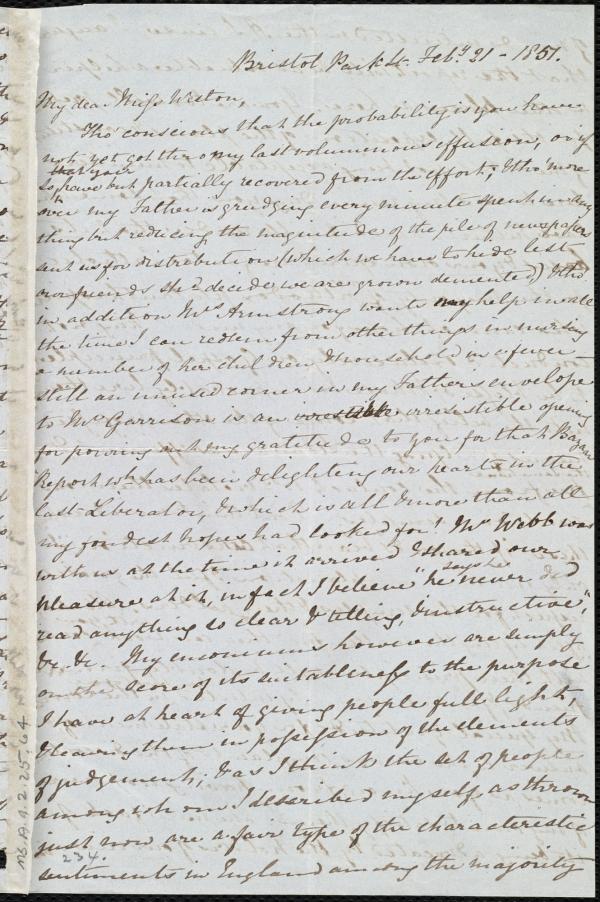 Bristol Park St. Feby 21 - 1851.
My dear Miss Weston,
Tho' conscious that the probability is you have
not yet got thro my last volumenous effusion, or if
that your
so, have but partially recovered from the effort; & tho' more
over my Father is grudging every minute spent in any
thing but reducing the magnitude of the pile of newspapers
sent us for distribution (which we have to hide lest
our friends shd decide we are grown demented) & tho
in addition Mrs Armstrong wants my help in all
the time I can redeem from other things in nursing
a number of her children & household in a fever –
still an unused corner in my Father's envelope
to Mr Garrison is an irresistible opening
for pouring out my gratitude to you for that Bazaar
Report wh has been delighting our hearts in the
last Liberator, & which is all & more than all
my fondest hopes had looked for! Mr Webb was
with us at the time it arrived & shared our
pleasure at it, in fact I believe "he says he never did
read anything so clear & telling, & instructive",
&c. &c. My encomiums however are simply
on the score of its suitableness to the purpose
I have at heart of giving people full light,
& leaving them in possession of the elements
of judgement; & as I think the set of people
among whom I described myself as thrown
just now are a fair type of the characteristic
sentiments in England among the majority
Ms A 9.2.25.64
234.